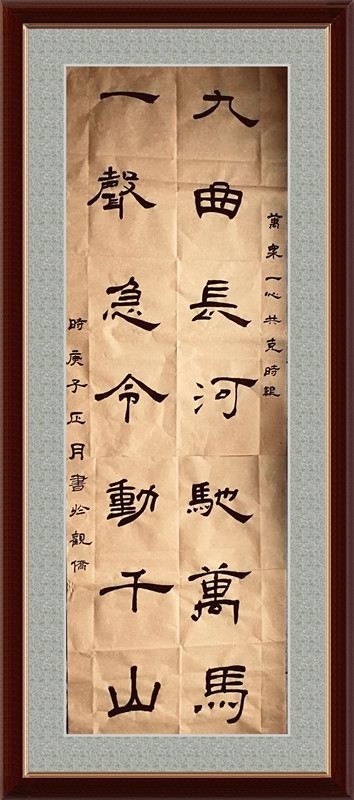 萬衆一心共克時艱
九曲長河馳萬馬
一聲急令動千山
時庚子正月書於觀僑